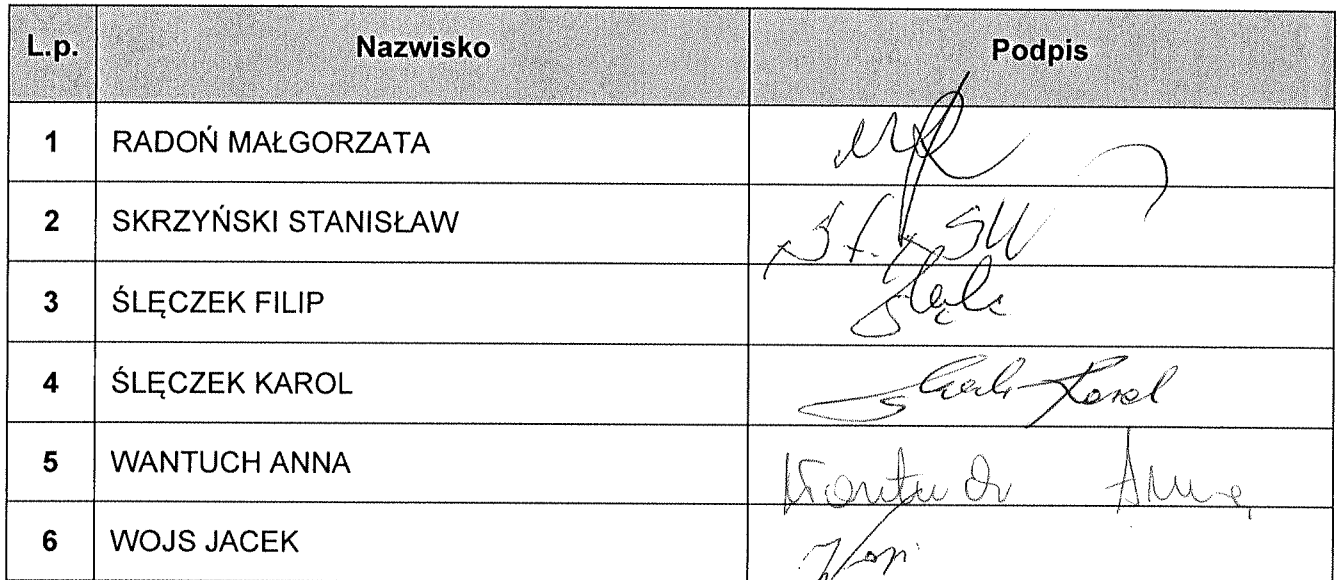 L.p. Nazwisko Podpis
1 RADOŃ MAŁGORZATA
2 SKRZYŃSKI STANISŁAW
3 ŚLĘCZEK FILIP
4 ŚLĘCZEK KAROL Karol
5 WANTUCH ANNA Wantuch Anna
6 WOJS JACEK